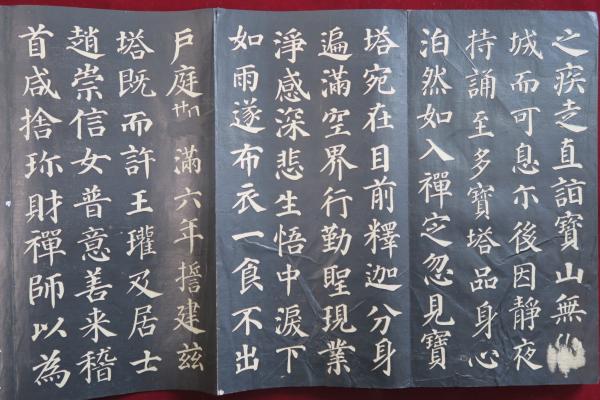 之疾走直詣寶山無
城而可息尒後因靜夜
持誦至多寶塔品身心
泊然如入禪定忽見寶
塔宛在目前釋迦分身
遍滿空界行勤聖現業
淨感深悲生悟中淚下
如雨遂布衣一食不出
戶庭滿六年誓建茲
塔既而許王瓘及居士
趙崇信女普意善来稽
首咸捨珎財禪師以為